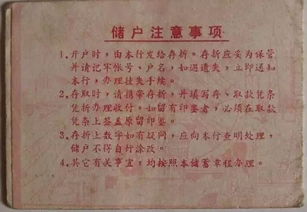 储户注意事项
1、开户时，由本行发给存折。存折应妥为保管
并请记牢帐号、户名，如迟遗失，立即通知
本行，办理挂失手续。
2、存取时，请携带存折，并填写存、取款凭条
凭折办理收付，如留有印鉴者，必须在取款
凭条上签盖原留印鉴。
3、存折上数字如有疑问，应向本行查明处理，
储户不得自行涂改。
4、其它有关事宜，均按照本储蓄章程办理。